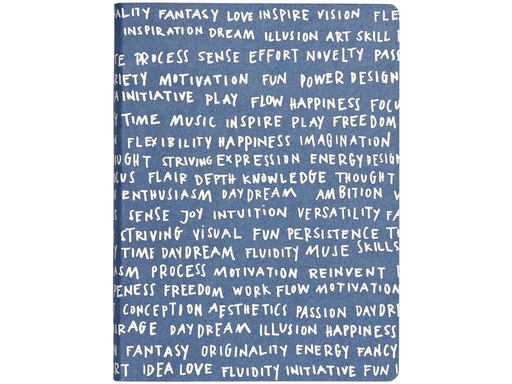 ALITY FANTASY LOVE INSPIRE VISION FLE
INSPIRATION DREAM ILLUSION ART SKILL
E PROCESS SENSE EFFORT NOVELTY PASS
RIETY MOTIVATION FUN POWER DESIGN
A INITIATIVE PLAY FLOW HAPPINESS FOCU
Y TIME MUSIC INSPIRE PLAY FREEDOM
FLEXIBILITY HAPPINESS IMAGINATION
UGHT STRIVING EXPRESSION ENERGY DESIGN
CUS FLAIR DEPTH KNOWLEDGE THOUGHT
ENTHUSIASM DAYDREAM AMBITION V
S SENSE JOY INTUITION VERSATILITY FA
STRIVING VISUAL FUN PERSISTENCE T
Y TIME DAYDREAM FLUIDITY MUSE SKILLS
ASM PROCESS MOTIVATION REINVENT
PENESS FREEDOM WORK FLOW MOTIVATION
CONCEPTION AESTHETICS PASSION DAYDR
RAGE DAYDREAM ILLUSION HAPPINESS
FANTASY ORIGINALITY ENERGY FANCY
RT IDEA LOVE FLUIDITY INITIATIVE FUN I